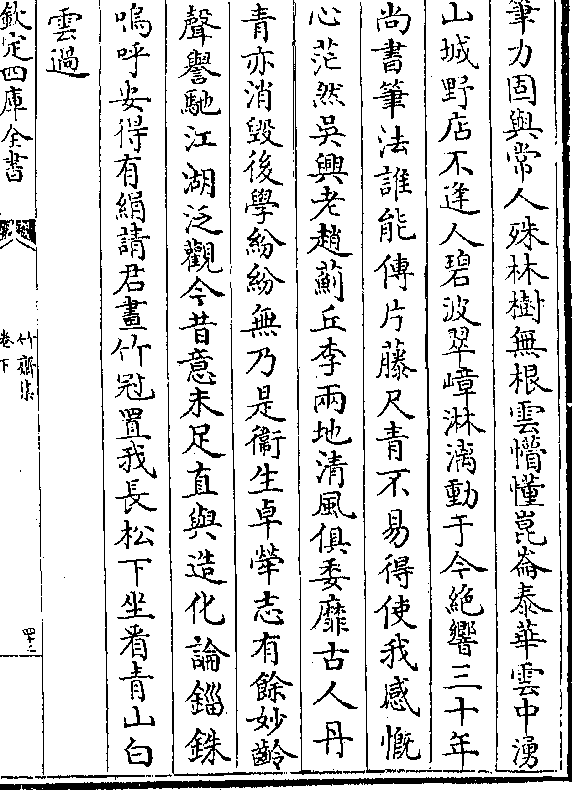 筆力固與常人殊林樹無根雲懵懂崑崙泰華雲中湧
山城野店不逢人碧波翠嶂淋漓動于今絶響三十年
尚書筆法誰能傳片藤尺青不易得使我感慨
心茫然吳興老趙薊丘李兩地清風俱委靡古人丹
青亦消毀後學紛紛無乃是衞生卓犖志有餘妙齡
聲譽馳江湖泛觀今昔意未足直與造化論錙銖
嗚呼安得有絹請君畫竹冠置我長松下坐看青山白
雲過
欽定四庫全書
竹齋集
卷下
四十三